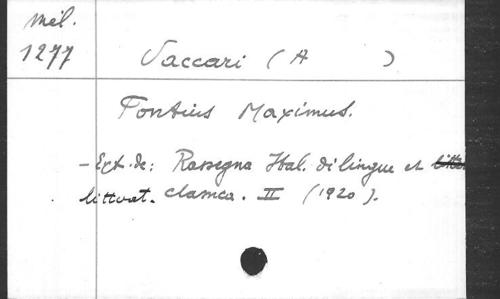 Mél.
1277
Vaccari (A )
Fontius Maximus.
- Ext. de: Rassegna Ital. di lingue et
litterat. classica. II (1920).